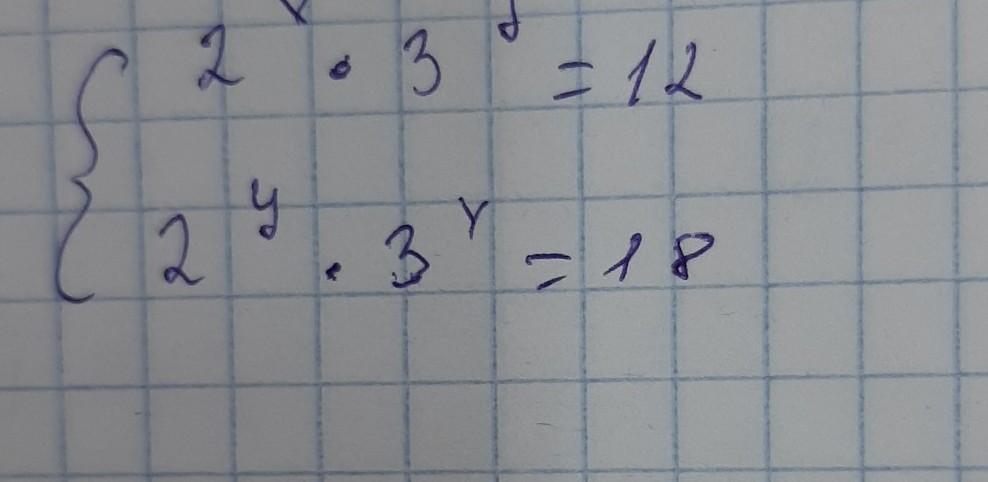 2^x · 3^y = 12
2^y · 3^x = 18